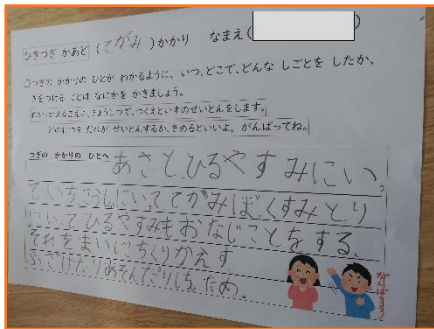 ひきつぎ かあど (てがみ)かかり なまえ( )
○つぎの かかりの ひとが わかるように、いつ、どこで、どんな しごとを したか、
きをつける ことは なにかを かきましょう。
きょうしつで、つくえといすのせいとんをします。
だれが せいとんするか、きめるといいよ。がんばってね。
つぎの かかりの ひとへ
あさと、ひるやすみにい、
てがみぼくすみとり
にいってひるやすみもおなじことをする、
それをまいにちくりかえす
ふざけたりあそんだりしちゃだめ。